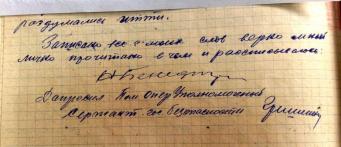 раздумались итти.
Записано все с моих слов верно мной
лично прочитано в чем и расписываюсь
Допросил Пом Опер Уполномоченный
Сержант гос безопасности